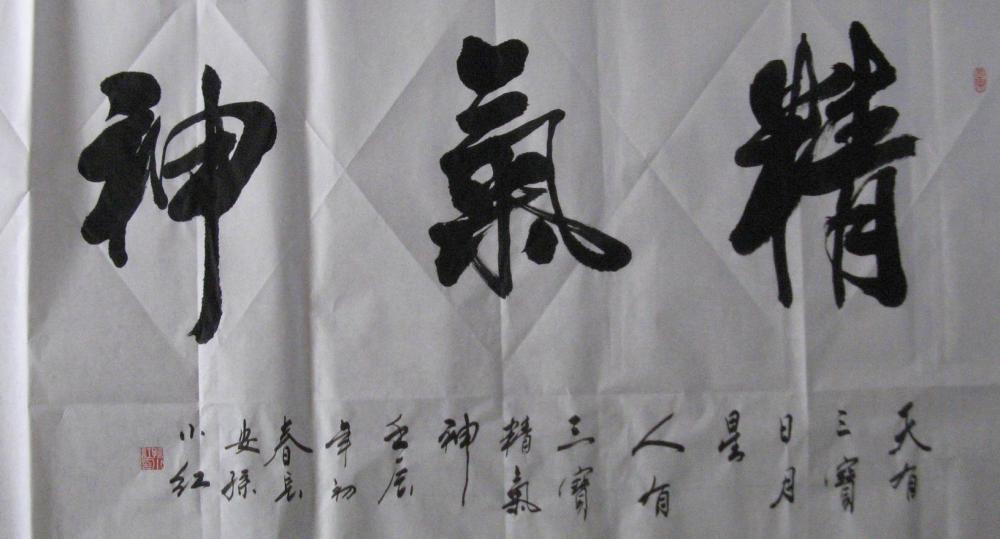 精氣神
天有
三寶
日月
星
人有
三寶
精氣
神
壬辰
年初
春長
安孫
小红